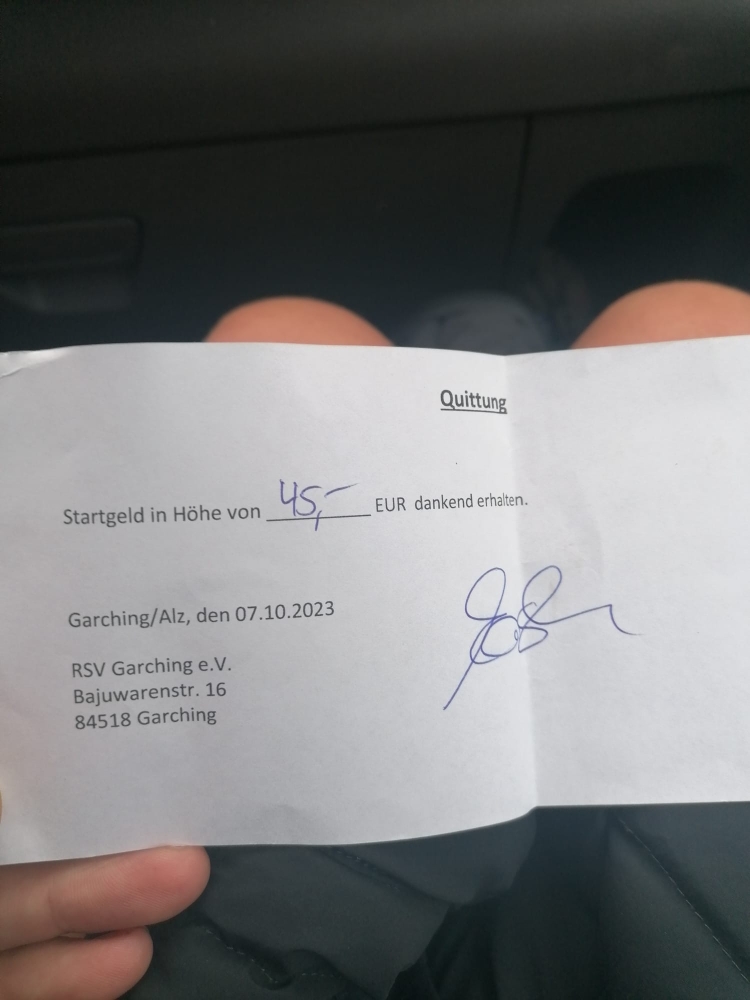 Quittung
Startgeld in Höhe von 45,- EUR dankend erhalten.
Garching/Alz, den 07.10.2023
RSV Garching e.V.
Bajuwarenstr. 16
84518 Garching